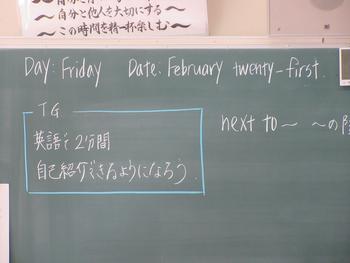 〜自分と他人を大切にする〜
〜この時間を精一杯楽しむ〜
Day: Friday Date: February twenty-first.
TG
英語で2分間
自己紹介できるようになろう.
next to〜 〜の